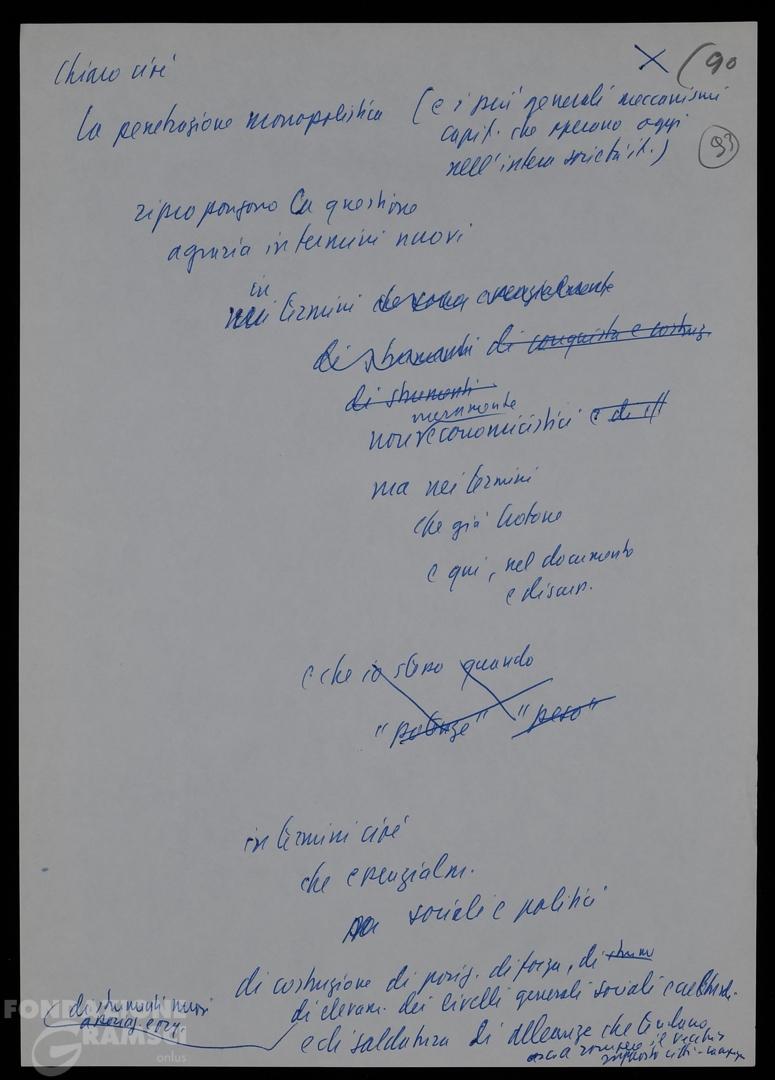 Chiaro cioè
X (90
La penetrazione monopolistica (e i più generali meccanismi
capit. che operano oggi
nell'intera società it.)
93
ripropongono la questione
agraria in termini nuovi
in
nei termini che sono essenzialmente
di strumenti di conquista e costruz.
di strumenti
meramente
non economicistici e di
ma nei termini
che già
e qui, nel documento
e discuss.
e che io stesso quando
"potenze" "peso"
in termini cioè
che essenzialm.
sociali e politici
di costruzione di posiz. di forza, di
di elevam. dei livelli generali sociali e
e di saldatura di alleanze che tendano
di strumenti nuovi
a rompere il vecchio
rapporto città-campagna
FONDAZIONE
GRAMSCI
onlus